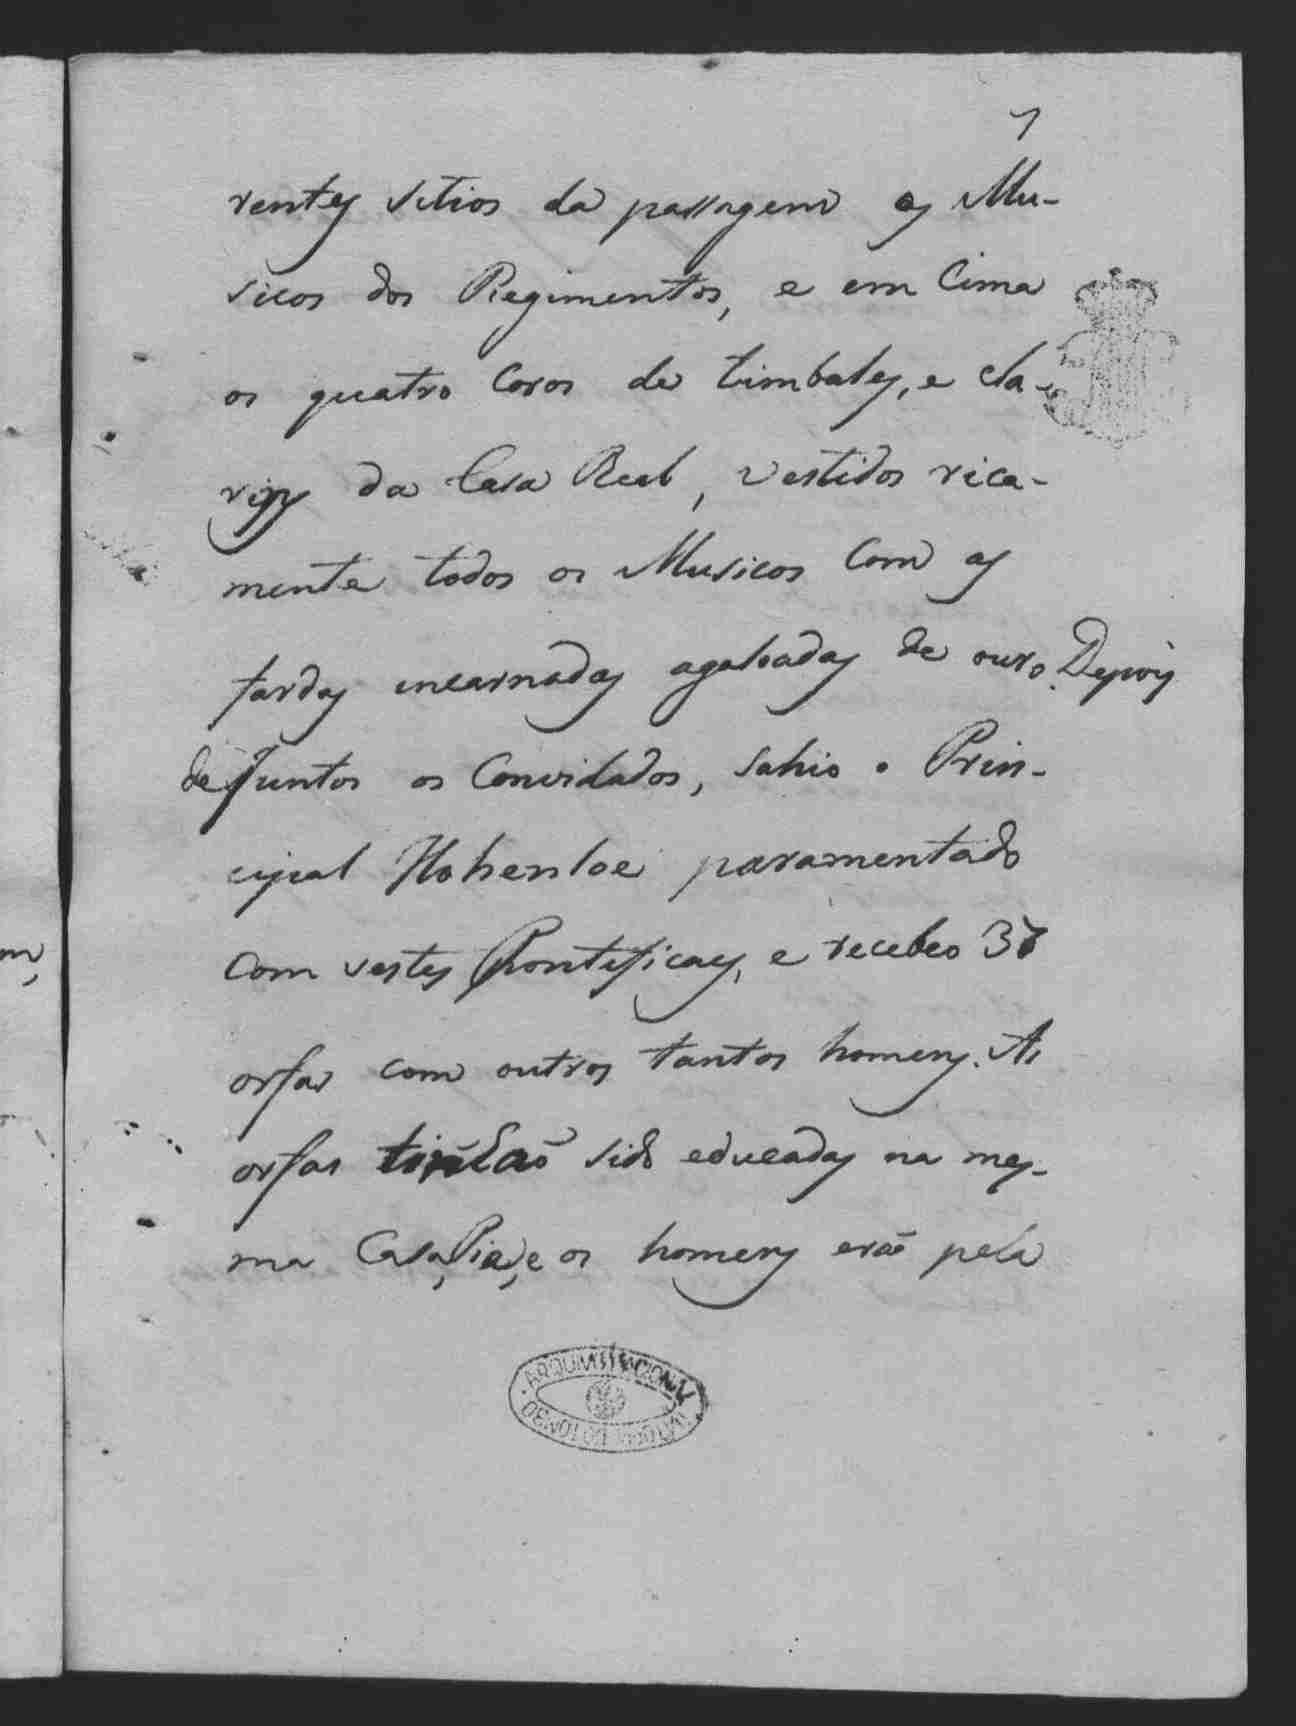 7
rentes sitios da passagem os Mu-
sicos dos Regimentos, e em Cima
os quatro Coros de timbales, e cla-
rins da Casa Real, vestidos rica-
mente todos os Musicos Com as
fardas incarnadas agaloadas de ouro. Depois
de Juntos os Convidados, Sahio o Prin-
cipal Hohenloe paramentado
Com vestes Pontificaes, e recebeo
orfas com outros tantos homens. As
orfas tinhaõ sido educadas na mes-
ma Casa, Pia, e os homens eraõ pela
ARQUIVO NACIONAL
DA TORRE DO TOMBO